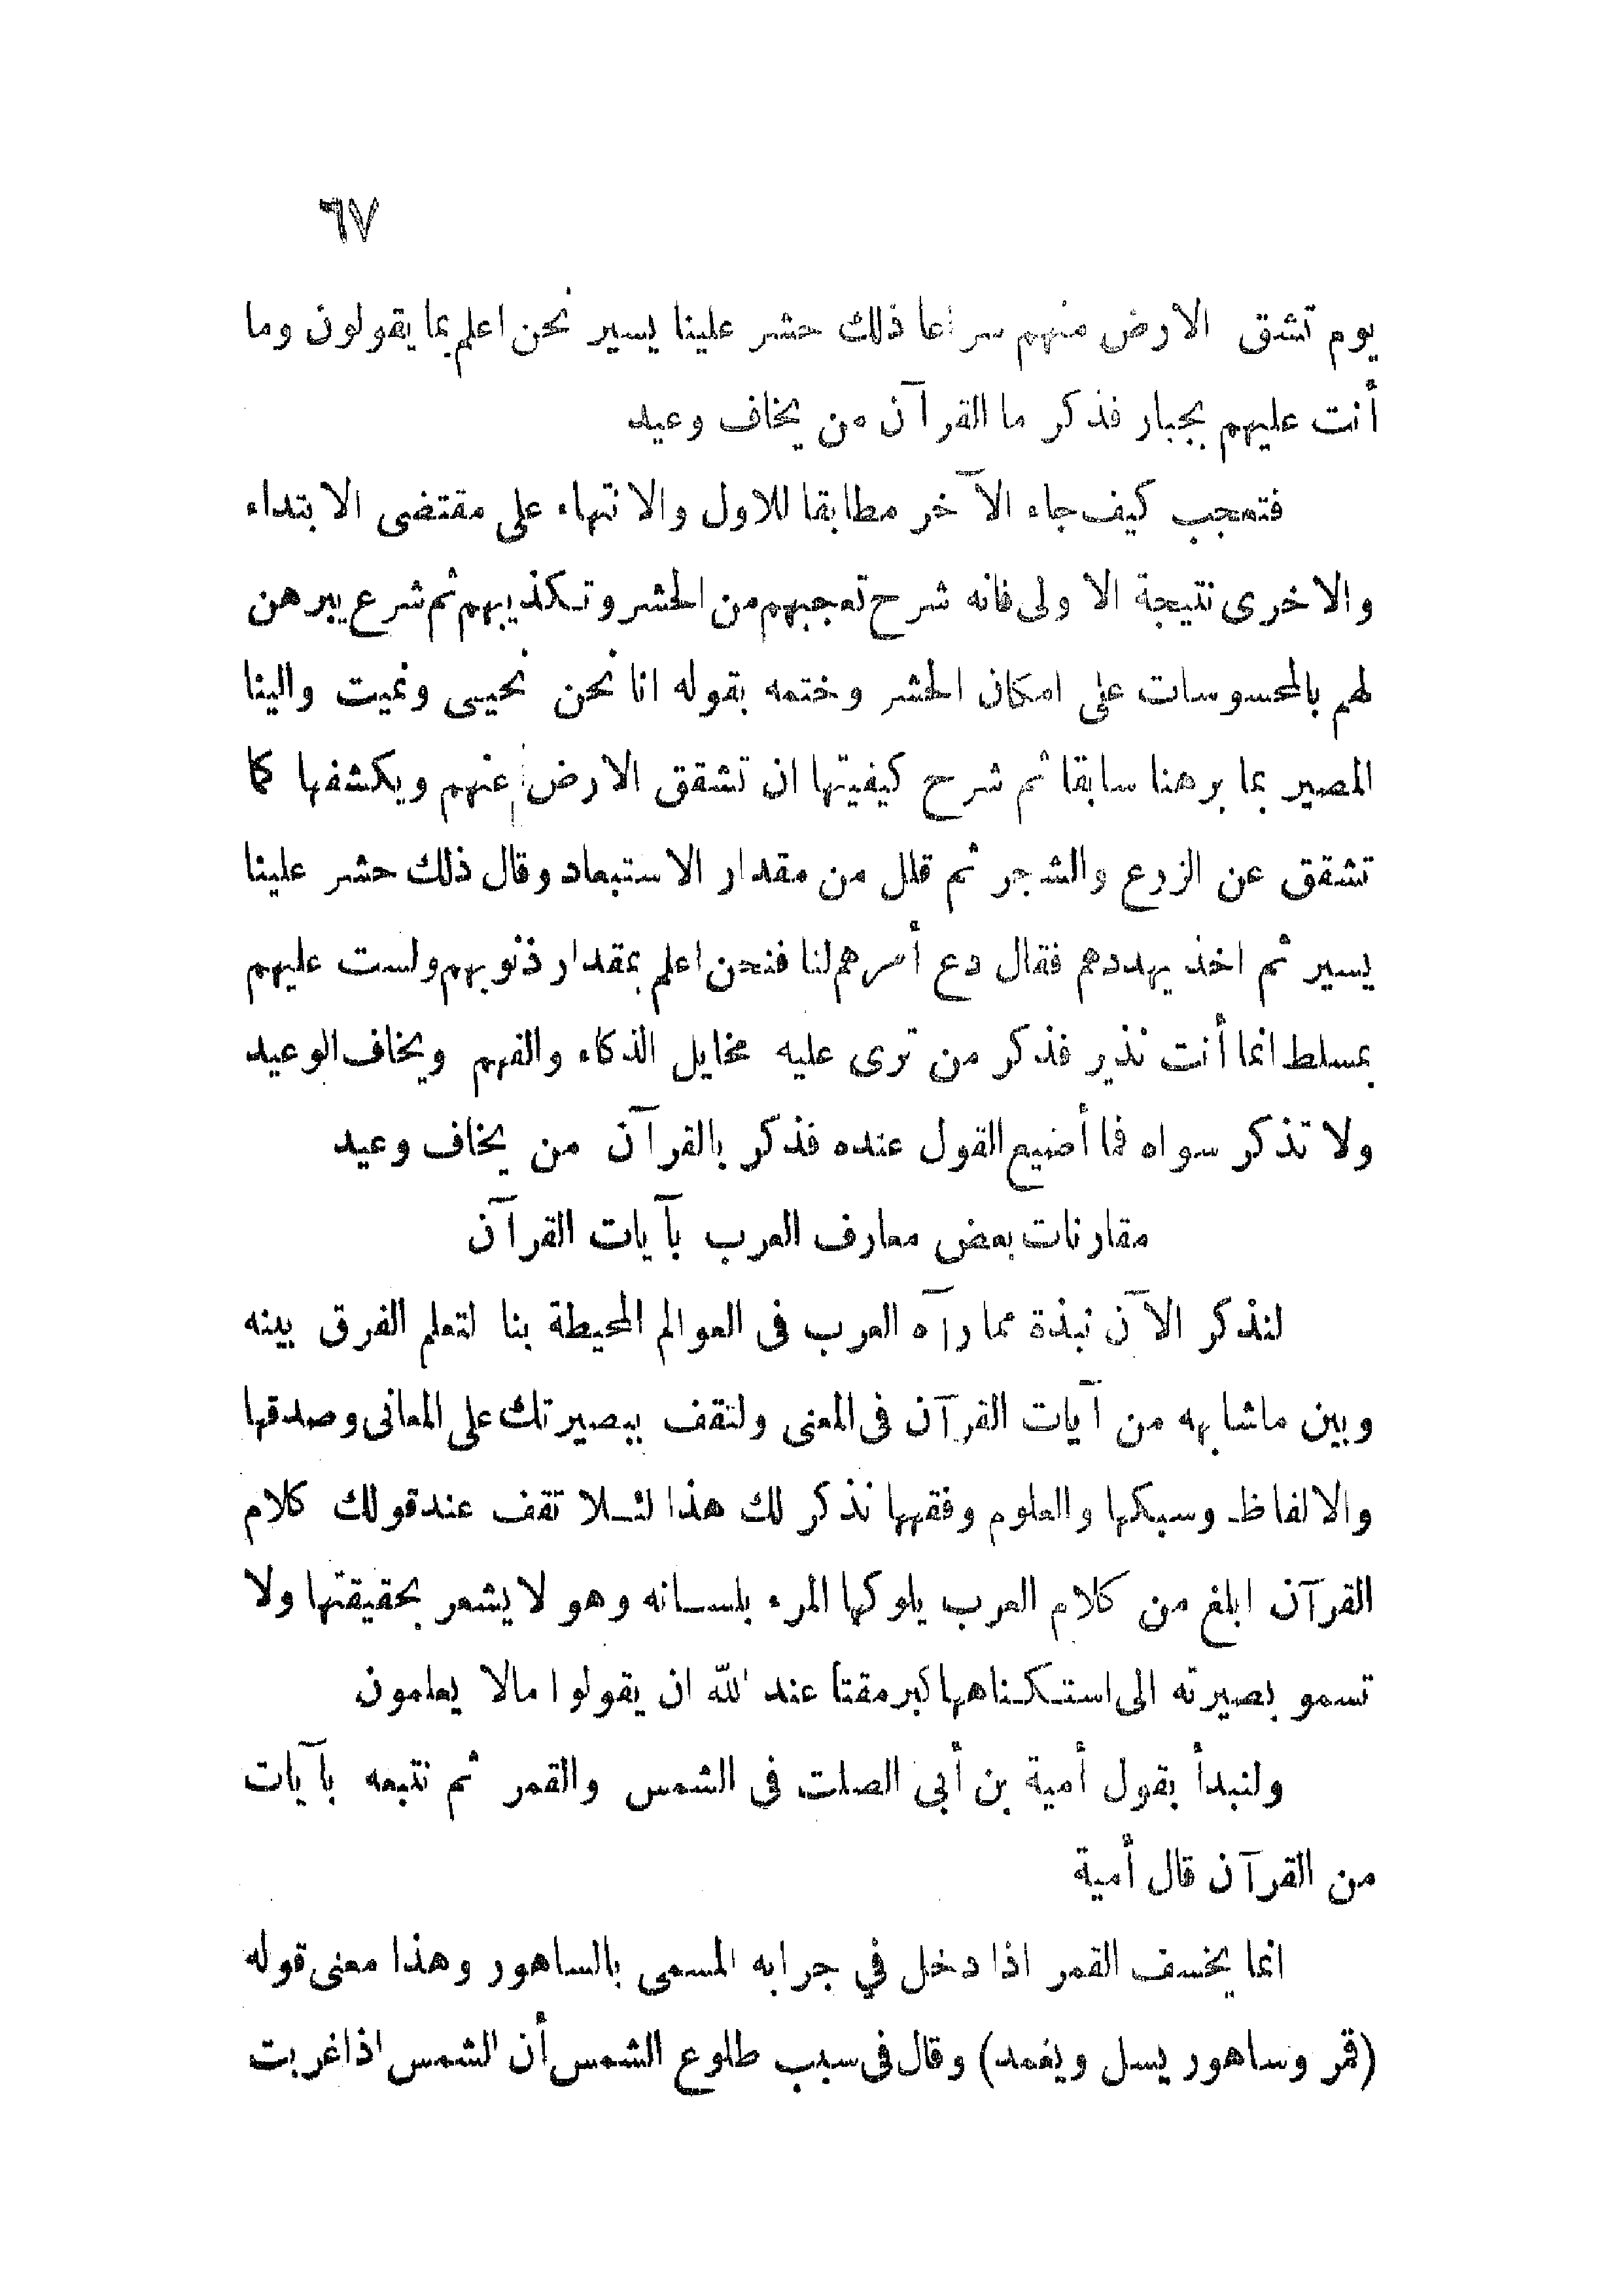 ٦٧
يوم تشقق الارض منهم سراعا ذلك حشر علينا يسير نحن اعلم بما يقولون وما
أنت عليهم بجبار فذكر ما القرآن من يخاف وعيد
فتعجب كيف جاء الآخر مطابقا للاول والانتهاء على مقتضى الابتداء
والاخرى نتيجة الاولى فانه شرح تعجبهم من الحشر وتكذيبهم ثم شرع يبرهن
لهم بالمحسوسات على امكان الحشر وختمه بقوله انا نحن نحيى ونميت والينا
المصير بما برهنا سابقا ثم شرح كيفيتها ان تشقق الارض عنهم ويكشفها كما
تشقق عن الزرع والشجر ثم قلل من مقدار الاستبعاد وقال ذلك حشر علينا
يسير ثم اخذ يهددهم فقال دع أمرهم لنا فنحن اعلم بمقدار ذنوبهم ولست عليهم
بمسلط انما أنت نذير فذكر من ترى عليه مخايل الذكاء والفهم ويخاف الوعيد
ولا تذكر سواه فما أضيع القول عنده فذكر بالقرآن من يخاف وعيد
مقارنات بعض معارف العرب بآيات القرآن
لنذكر الآن نبذة مما رآه العرب فى العوالم المحيطة بنا لتعلم الفرق بينه
وبين ماشابهه من آيات القرآن فى المعنى ولتقف ببصيرتك على المعانى وصدقها
والالفاظ وسبكها والعلوم وفقهها نذكر لك هذا لئلا تقف عند قولك كلام
القرآن ابلغ من كلام العرب يلوكها المرء بلسانه وهو لا يشعر بحقيقتها ولا
تسمو بصيرته الى استكناهها كبر مقتا عند الله ان يقولوا مالا يعلمون
ولنبدأ بقول أمية بن أبى الصلت فى الشمس والقمر ثم نتبعه بآيات
من القرآن قال أمية
انما يخسف القمر اذا دخل في جرابه المسمى بالساهور وهذا معنى قوله
(قمر وساهور يسل ويغمد) وقال فى سبب طلوع الشمس أن الشمس اذا غربت